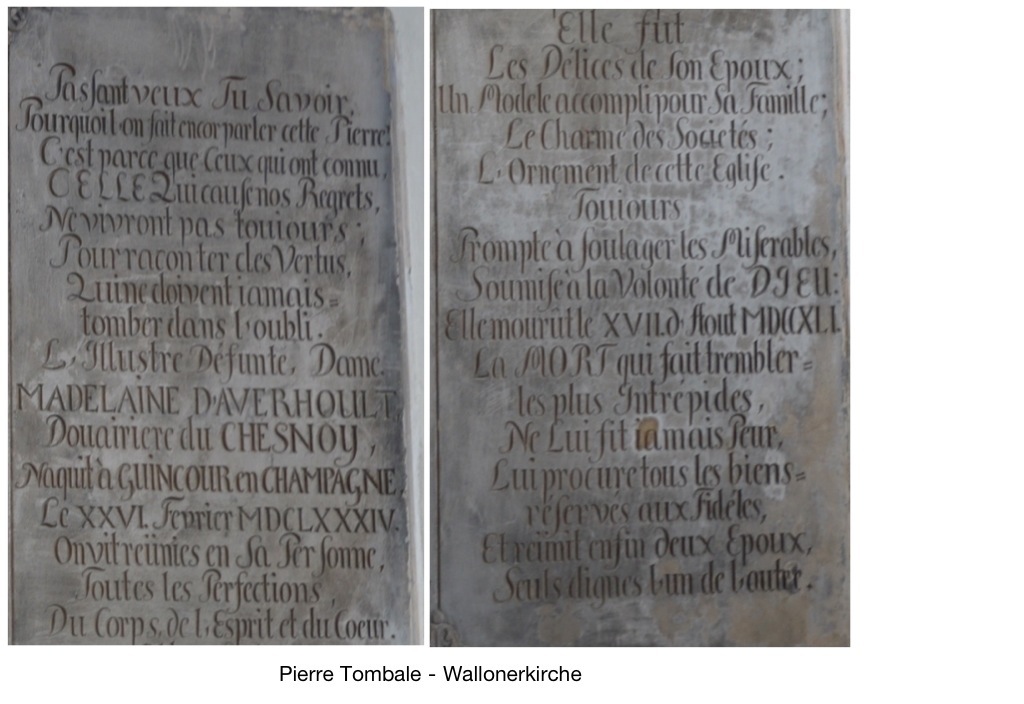 Passant veux Tu Savoir,
Pourquoi l'on fait encor parler cette Pierre!
C'est parce que Ceux qui ont connu,
CELLE Qui cause nos Regrets,
Ne vivront pas touiours;
Pour raconter des Vertus,
Qui ne doivent iamais=
tomber dans l'oubli.
L'Illustre Défunte, Dame
MADELAINE D'AVERHOULT
Douairiere du CHESNOY,
Naquit à GUINCOUR en CHAMPAGNE
Le XXVI. Fevrier MDCLXXXIV.
On vit reünies en Sa Personne,
Toutes les Perfections,
Du Corps, de l'Esprit et du Coeur.
Elle fut
Les Délices de Son Epoux;
Un Modele accompli pour Sa Famille;
Le Charme des Societés;
L'Ornement de cette Eglise.
Touiours
Prompte à soulager les Miserables,
Soumise à la Volonté de DIEU:
Elle mourût le XVII.d'Aout MDCCXLI.
La MORT qui fait trembler=
les plus Intrépides,
Ne Lui fit iamais Peur,
Lui procure tous les biens=
réservés aux Fidéles,
Et reünit enfin deux Epoux,
Seuls dignes l'un de l'auter.
Pierre Tombale - Wallonerkirche